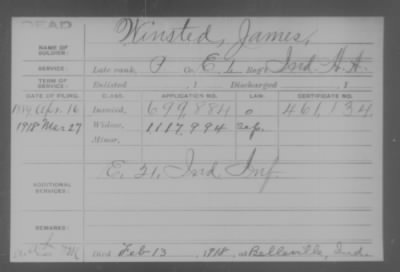 DEAD
Winsted, James,
NAME OF SOLDIER:
SERVICE: Late rank, P Co. E, 4 Reg't Ind. H. A.
TERM OF SERVICE: Enlisted , 1 Discharged , 1
DATE OF FILING. CLASS. APPLICATION NO. LAW. CERTIFICATE NO.
Apr. 16 Invalid, 699,884 o 461,134
1918 Mar 27 Widow, 1117,994
Minor,
E. 21, Ind Inf
ADDITIONAL SERVICES:
REMARKS:
Died Feb 13, 1918, at Belleville, Ind.